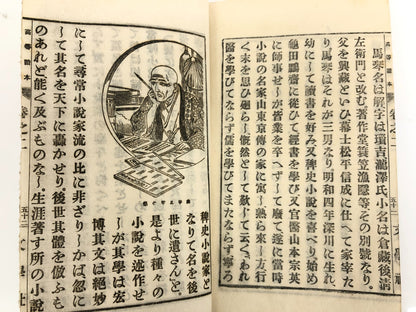 馬琴名は解字は瑣吉瀧澤氏小名は倉藏後淸
左衞門と改む著作堂蓑笠漁隱等の別號なり。
父を興藏といひ幕士松平信成に仕へて家宰た
り馬琴はそれが三男なり明和四年深川に生る。
幼にして讀書を好み又稗史小說を喜べり始め
龜田鵬齋に從ひて經書を學び又官醫山本宗英
に師事せしが皆業を卒へずして廢し遂に當時
小說の名家山東京傳の家に寓し熟ら來し方行
く末を思ひ廻らして慨然として歎して云くわれ
醫を學びてならず儒を學びてまたならず寧ろ
稗史小說家と
なりて名を後
世に遺さんと。
是より種々の
小說を述作せ
しが其學は宏
博其文は絕妙
にして尋常小說家流の比に非ざりしかば忽に
して其名を天下に轟かせり後世其體を倣ふも
のあれど能く及ぶものなし。生涯著す所の小說
高等讀本
卷之二
五十二
文學社